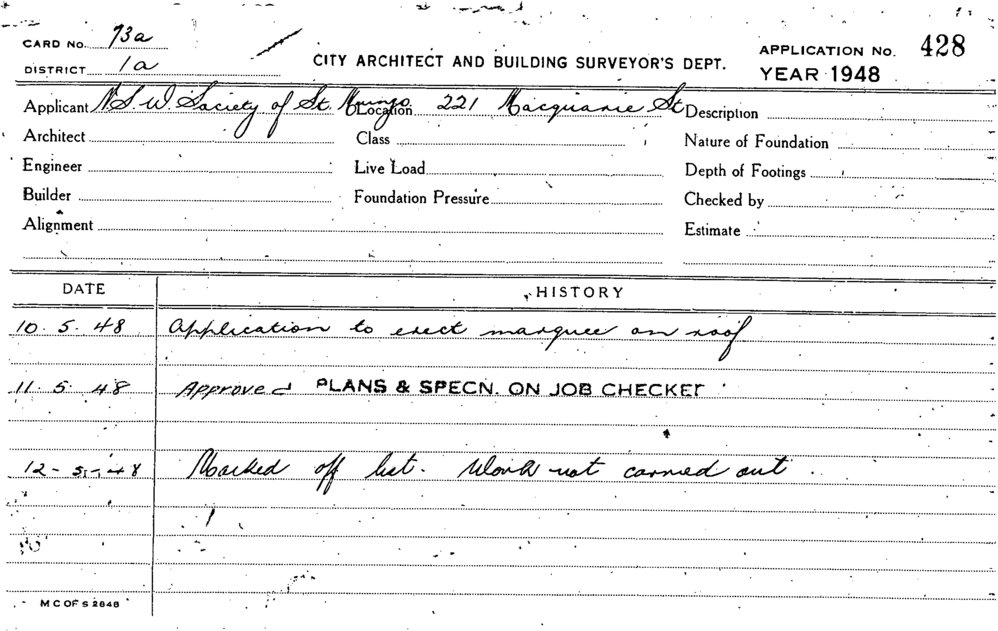 CARD No. 73a
DISTRICT 1a
CITY ARCHITECT AND BUILDING SURVEYOR'S DEPT.
APPLICATION No. 428
YEAR 1948
Applicant N.S.W. Society of St. Mungo Location 221 Macquarie St Description
Architect Class Nature of Foundation
Engineer Live Load Depth of Footings
Builder Foundation Pressure Checked by
Alignment Estimate
DATE HISTORY
10. 5. 48 Application to erect marquee on roof
11. 5. 48 Approved PLANS & SPECN. ON JOB CHECKED
12-5-48 Marked off list. Work not carried out.
M C OF S 2848